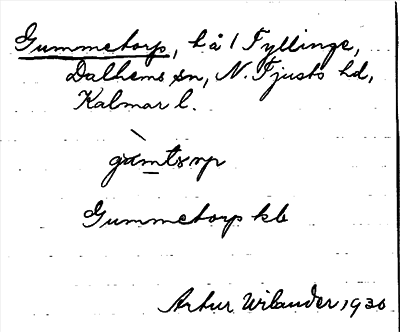 Gummetorp, h å / Fyllinge,
Dalhems sn, N. Tjusts hd,
Kalmar l.
Gummetorp kb
Artur Wilander, 1930